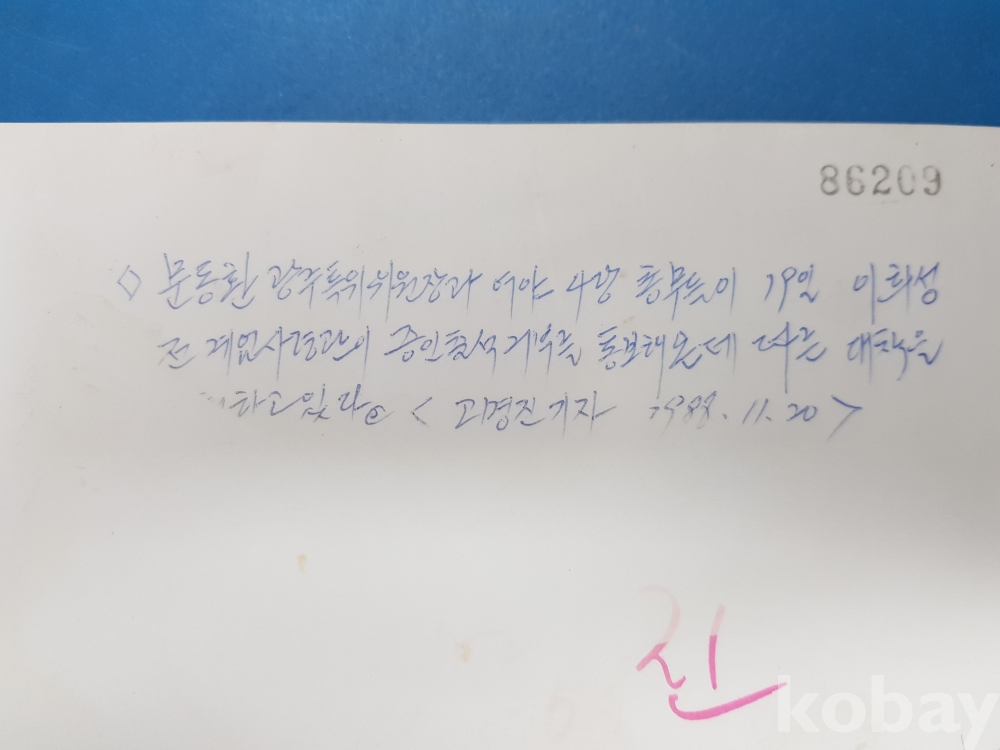 86209
◇ 문동환 광주특위위원장과 여야 4당 총무들이 19일 이희성
전 계엄사령관이 증인출석거부를 통보해온데 따른 대책을
하고 있다. < 고경진기자 1988. 11. 20 >
진
kobay